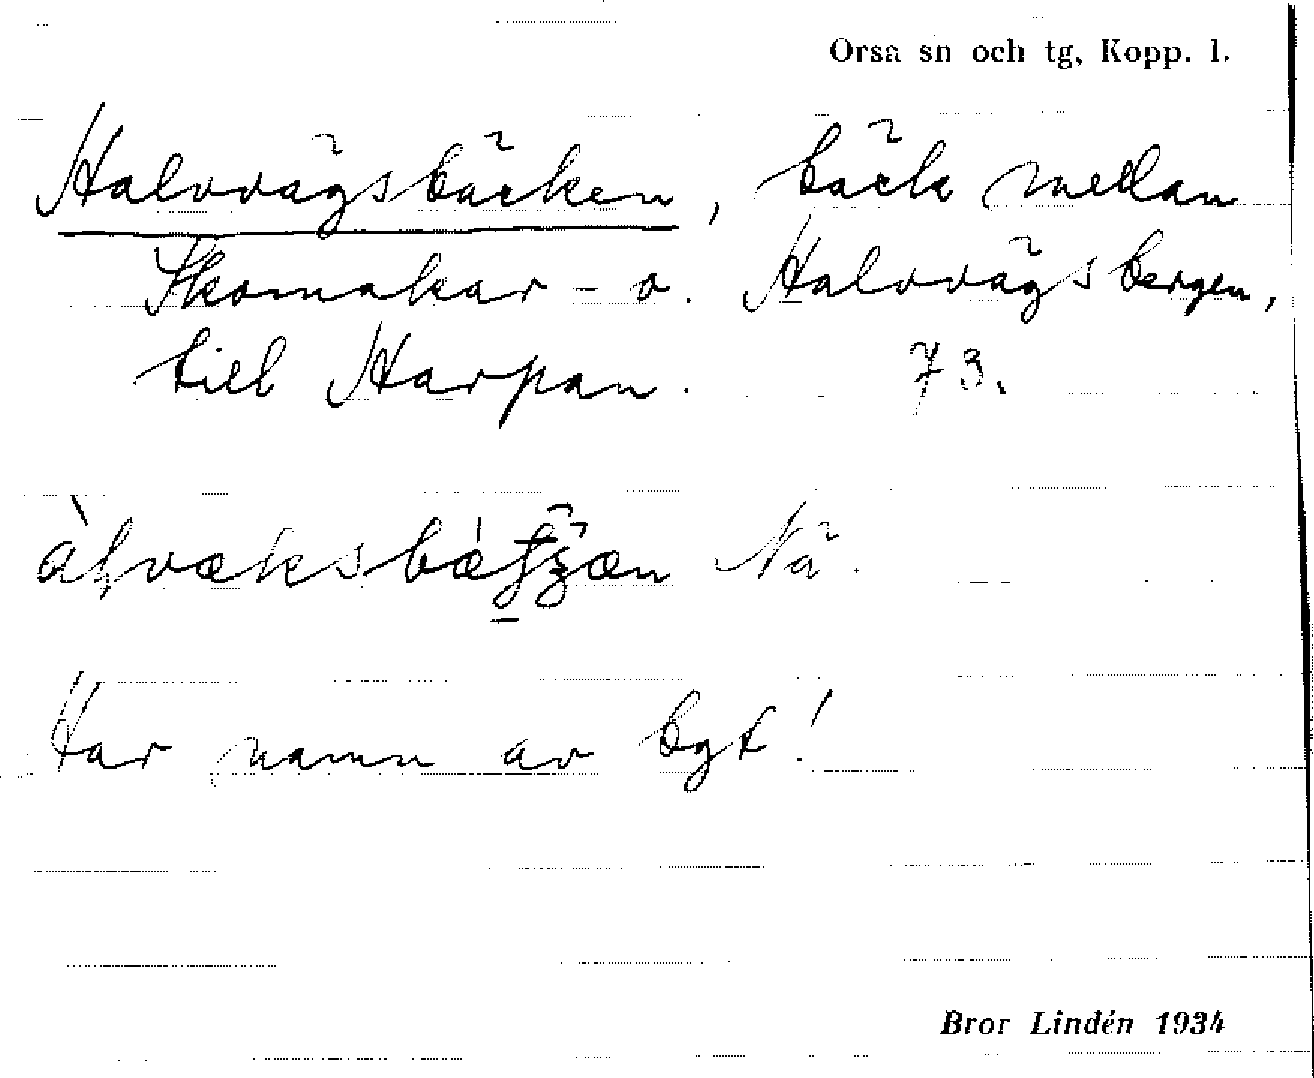 Orsa sn och tg, Kopp. l.
Halvvägsbäcken, bäck mellan
Skomakar- o. Halvvägsbergen,
till Harpan. 73.
Nä.
Har namn av bgt!
Bror Lindén 1934